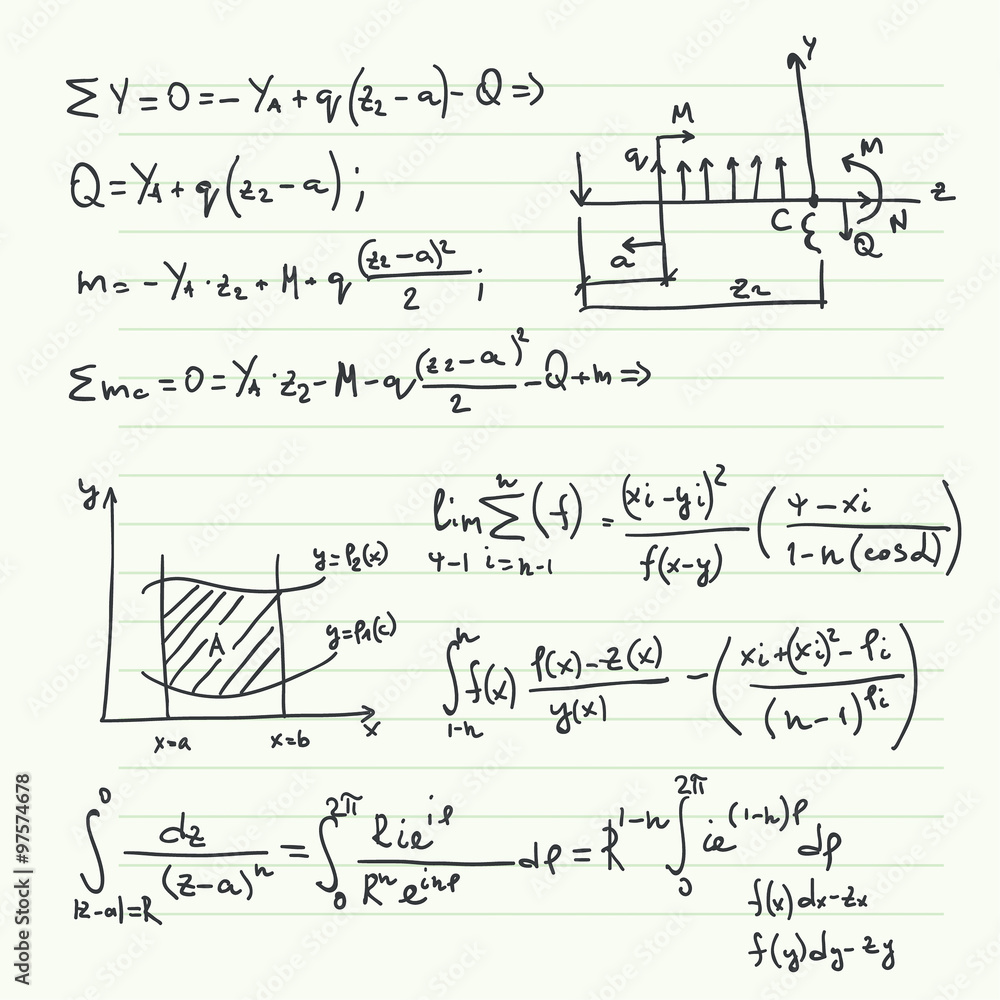 ∑ Y = 0 = – Y_A + q(z₂ – a) – Q ⇒
Q = Y_A + q(z₂ – a);
m = – Y_A · z₂ + M + q (z₂ – a)²/2;
∑ m_c = 0 = Y_A · z₂ – M – q (z₂ – a)²/2 – Q + m ⇒
Y
M
q
M
z
C
N
Q
a
z₂
y
y=f₂(x)
A
y=f₁(c)
x=a
x=b
x
lim_{4-1} ∑_{i=n-1}^{n} (f) = (xi – yi)²/f(x–y) (4 – xi/1–n(cosα))
∫_{1-n}^{n} f(x) f(x)–z(x)/y(x) – (xi+(xi)²–fi/(n–1)^{fi})
∫_{|z-a|=R}^{0} dz/(z–a)ⁿ = ∫_{0}^{2π} Rie^{iρ}/Rⁿe^{inρ} dρ = R^{1-n} ∫_{0}^{2π} ie^{(1-n)ρ} dρ
f(x)dx–zx
f(y)dy–zy
Adobe Stock | #97574678